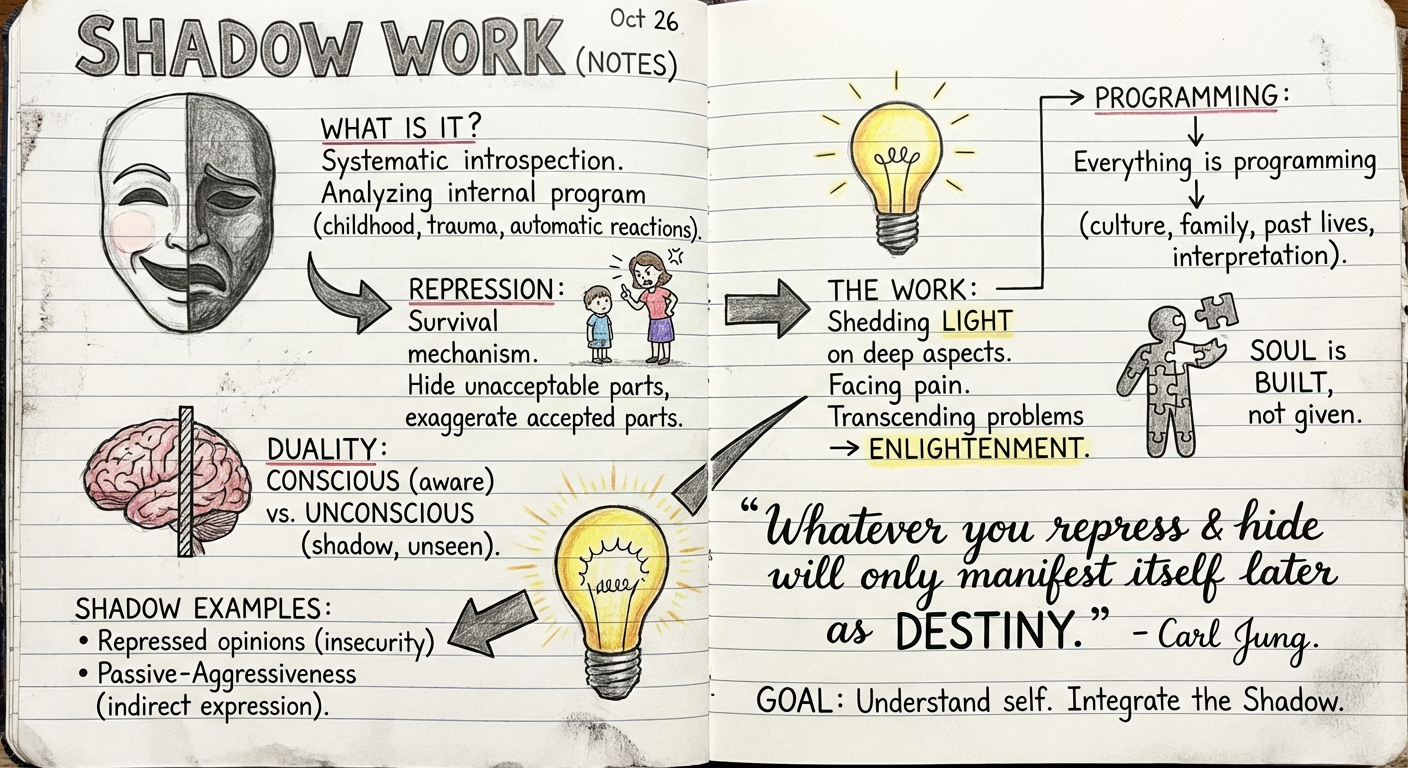 SHADOW WORK (NOTES)
Oct 26
WHAT IS IT?
Systematic introspection.
Analyzing internal program
(childhood, trauma, automatic reactions).
REPRESSION:
Survival
mechanism.
Hide unacceptable parts,
exaggerate accepted parts.
DUALITY:
CONSCIOUS (aware)
vs. UNCONSCIOUS
(shadow, unseen).
SHADOW EXAMPLES:
• Repressed opinions (insecurity)
• Passive-Aggressiveness
(indirect expression).
PROGRAMMING:
Everything is programming
(culture, family, past lives,
interpretation).
THE WORK:
Shedding LIGHT
on deep aspects.
Facing pain.
Transcending problems
→ ENLIGHTENMENT.
SOUL is
BUILT,
not given.
"Whatever you repress & hide
will only manifest itself later
as DESTINY." - Carl Jung.
GOAL: Understand self. Integrate the Shadow.